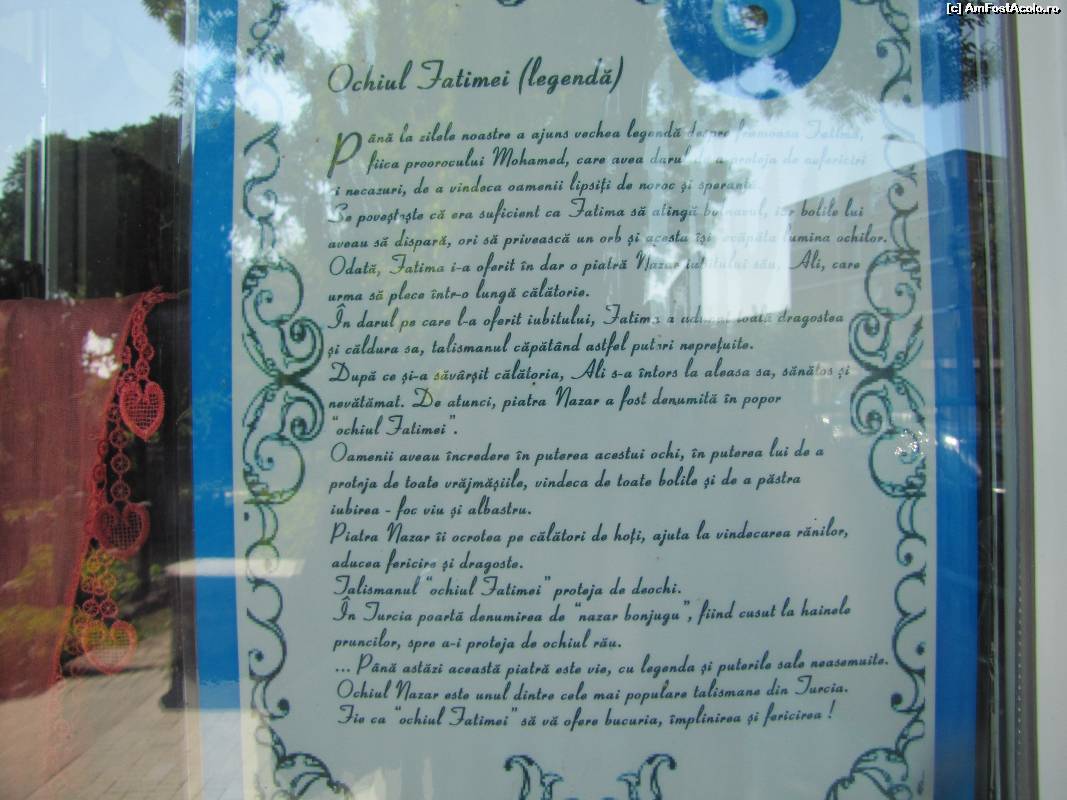 [c] AmFostAcolo.ro
Ochiul Fatimei (legendă)
Până la zilele noastre a ajuns vechea legendă despre frumoasa Fatima,
fiica proorocului Mohamed, care avea darul de a proteja de nefericiri
și necazuri, de a vindeca oamenii lipsiți de noroc și speranță.
Se povestește că era suficient ca Fatima să atingă bolnavul, iar bolile lui
aveau să dispară, ori să privească un orb și acesta își căpăta lumina ochilor.
Odată, Fatima i-a oferit în dar o piatră Nazar iubitului său, Ali, care
urma să plece într-o lungă călătorie.
În darul pe care l-a oferit iubitului, Fatima a adunat toată dragostea
și căldura sa, talismanul căpătând astfel puteri neprețuite.
După ce și-a săvârșit călătoria, Ali s-a întors la aleasa sa, sănătos și
nevătămat. De atunci, piatra Nazar a fost denumită în popor
"ochiul Fatimei".
Oamenii aveau încredere în puterea acestui ochi, în puterea lui de a
proteja de toate vrăjmășiile, vindeca de toate bolile și de a păstra
iubirea - foc viu și albastru.
Piatra Nazar îi ocrotea pe călători de hoți, ajuta la vindecarea rănilor,
aducea fericire și dragoste.
Talismanul "ochiul Fatimei" proteja de deochi.
În Turcia poartă denumirea de "nazar bonjugu", fiind cusut la hainele
pruncilor, spre a-i proteja de ochiul rău.
... Până astăzi această piatră este vie, cu legenda și puterile sale neasemuite.
Ochiul Nazar este unul dintre cele mai populare talismane din Turcia.
Fie ca "ochiul Fatimei" să vă ofere bucuria, împlinirea și fericirea !